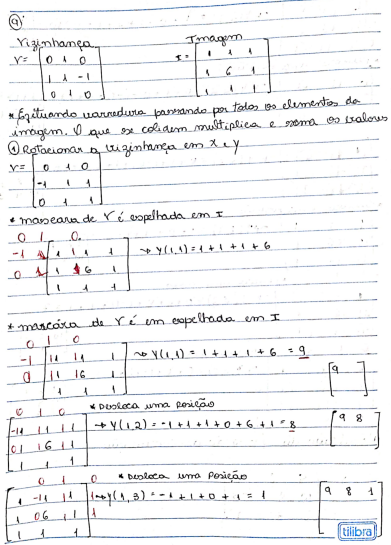 9
Vizinhança Imagem
V= 0 1 0 I= 1 1 1
1 1 -1 1 6 1
0 1 0 1 1 1
* Efetuando varredura passando por todos os elementos da
imagem. O que se colidem multiplica e soma os valores
1 Rotacionar a vizinhança em x e y
V= 0 1 0
-1 1 1
0 1 1
* mascara de V é espelhada em I
0 1 0
-1 1 1 1 1 → Y(1,1)=1+1+1+6
0 1 1 6 1
1 1 1
* mascára de V é em espelhada em I
0 1 0
-1 11 11 1 → Y(1,1) = 1+1+1+6 = 9
0 11 16 1 9
1 1 1
0 1 0 * Desloca uma posição
-11 11 11 → Y(1,2) = -1+1+1+0+6+1 = 8 9 8
01 16 11
1 1 1
0 1 0 * Desloca uma posição
1 -11 11 1 → Y(1,3) = -1+1+0+1 = 1 9 8 1
1 06 11 1
1 1 1
tilibra